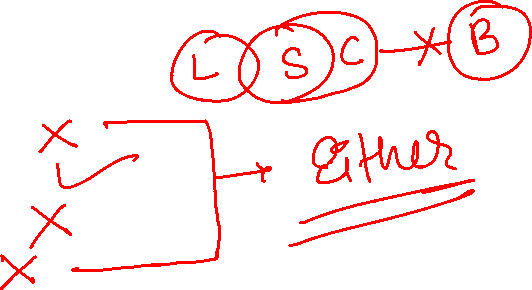 L S C B
Either